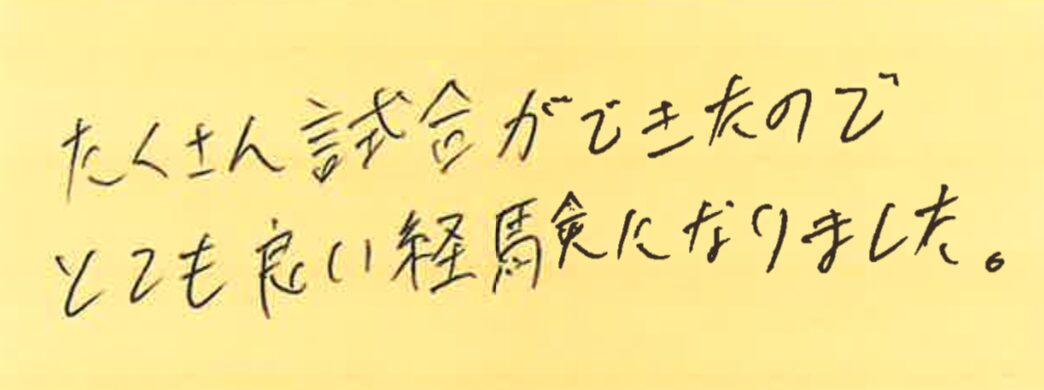 たくさん試合ができたので
とても良い経験になりました。